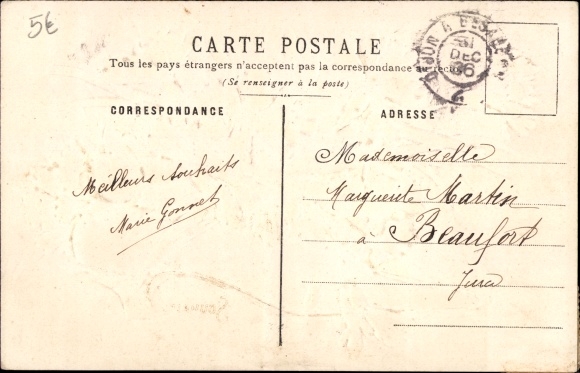 5€
CARTE POSTALE
Tous les pays étrangers n'acceptent pas la correspondance au recto
(Se renseigner à la poste)
CORRESPONDANCE
ADRESSE
31
DEC
06
Meilleurs souhaits
Marie Gonnet
Mademoiselle
Marguerite Martin
à Beaufort
Jura